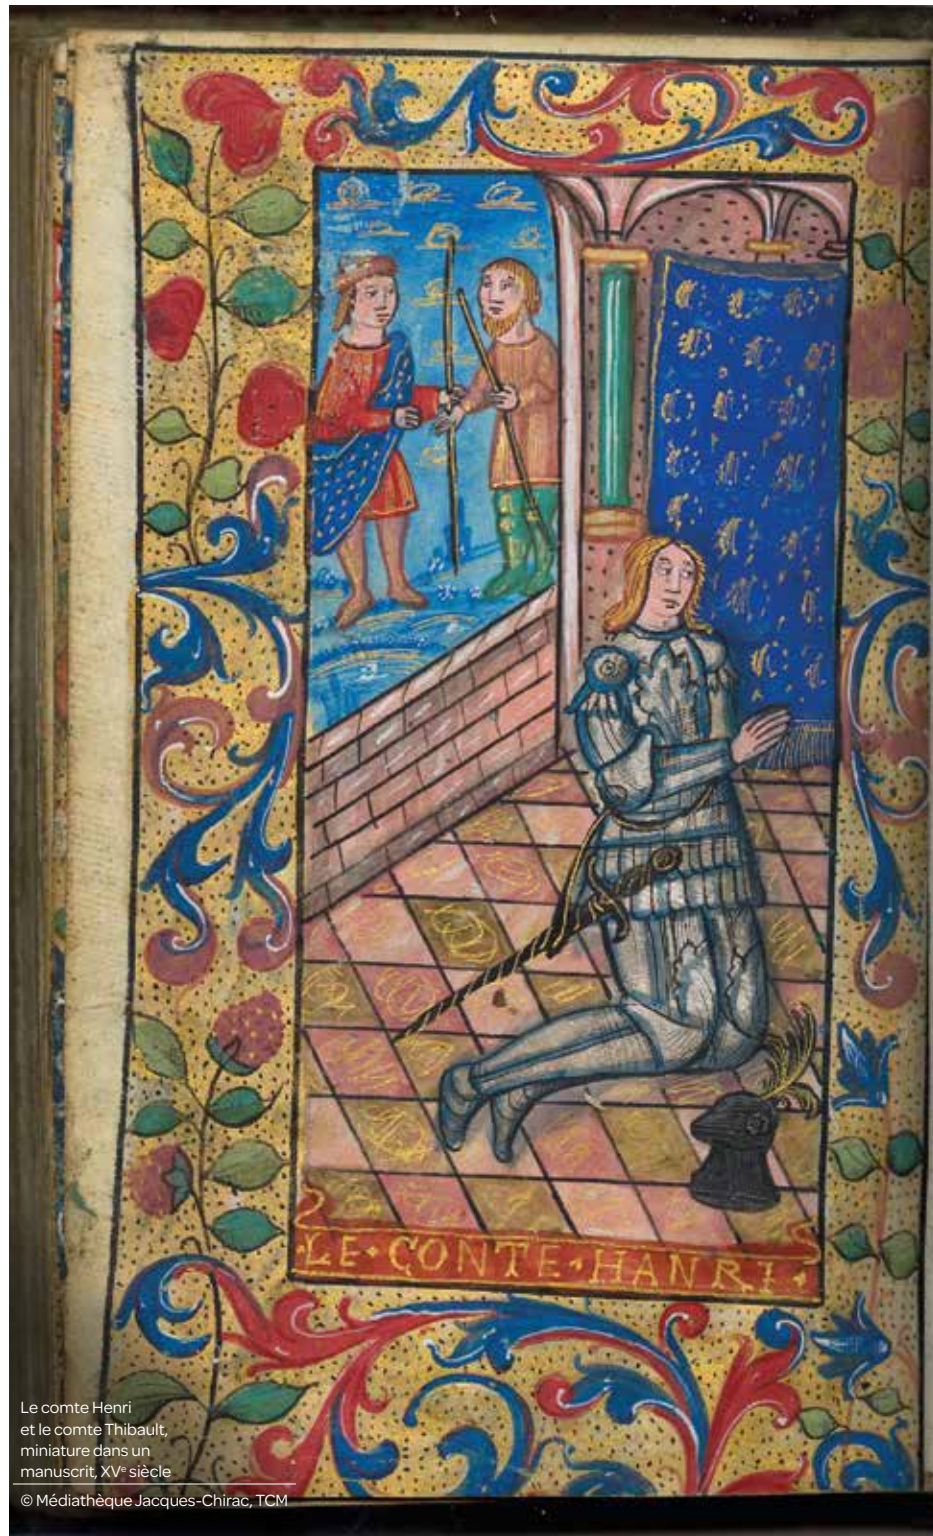 ·LE·CONTE·HANRI·
Le comte Henri
et le comte Thibault,
miniature dans un
manuscrit, XVe siècle
© Médiathèque Jacques-Chirac, TCM